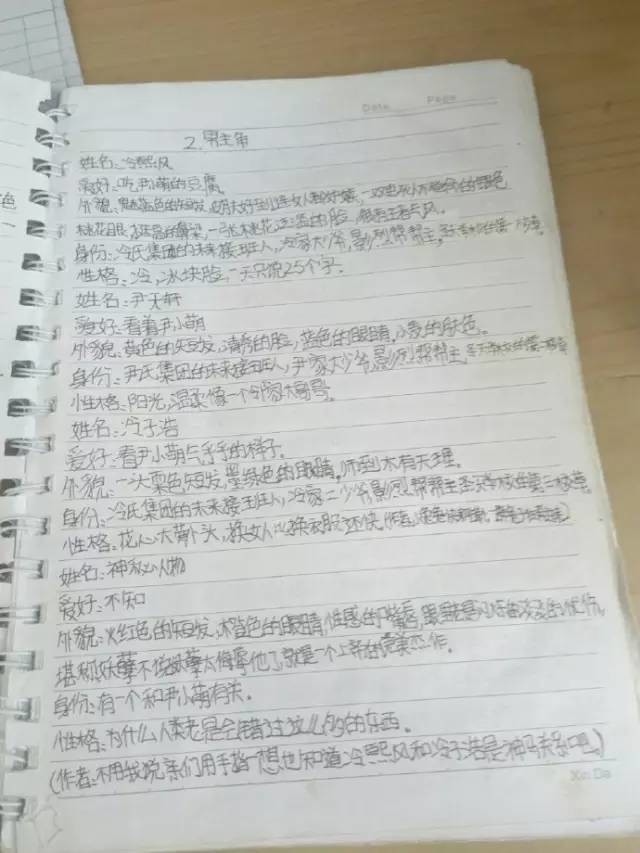 Date Page
2.男主角
姓名:冷熙风
爱好:吃尹小萌的豆腐
外貌:黑蓝色的短发,皮肤好到连女人都妒嫉,一双
桃花眼,一张桃花泛滥的脸,
身份:冷氏集团的未来接班人,冷家大少爷,影烈帮帮主,
性格:冷,冰块脸,一天只说25个字。
姓名:尹天轩
爱好:看着尹小萌
外貌:黄色的短发,清秀的脸,蓝色的眼睛,小麦的肤色。
身份:尹氏集团的未来接班人,尹家大少爷,影烈帮帮主,
性格:阳光,温柔像一个邻家大哥哥
姓名:冷子浩
爱好:看尹小萌气乎乎的样子。
外貌:一头栗色短发,墨绿色的眼睛,帅到木有天理。
身份:冷氏集团的未来接班人,冷家二少爷,影烈帮帮主
性格:花心大萝卜头,换女人比换衣服还快
姓名:神秘人物
爱好:不知
外貌:火红色的短发,橙色的眼睛,性感的嘴唇,
堪称妖孽不说妖孽太侮辱他了,就是一个上帝的完美杰作。
身份:有一个和尹小萌有关。
性格:为什么人类老是会错过这么多的东西。
(作者:不用我说亲们用手指想也知道冷熙风和冷子浩是神马关系吧。)
Xin Da